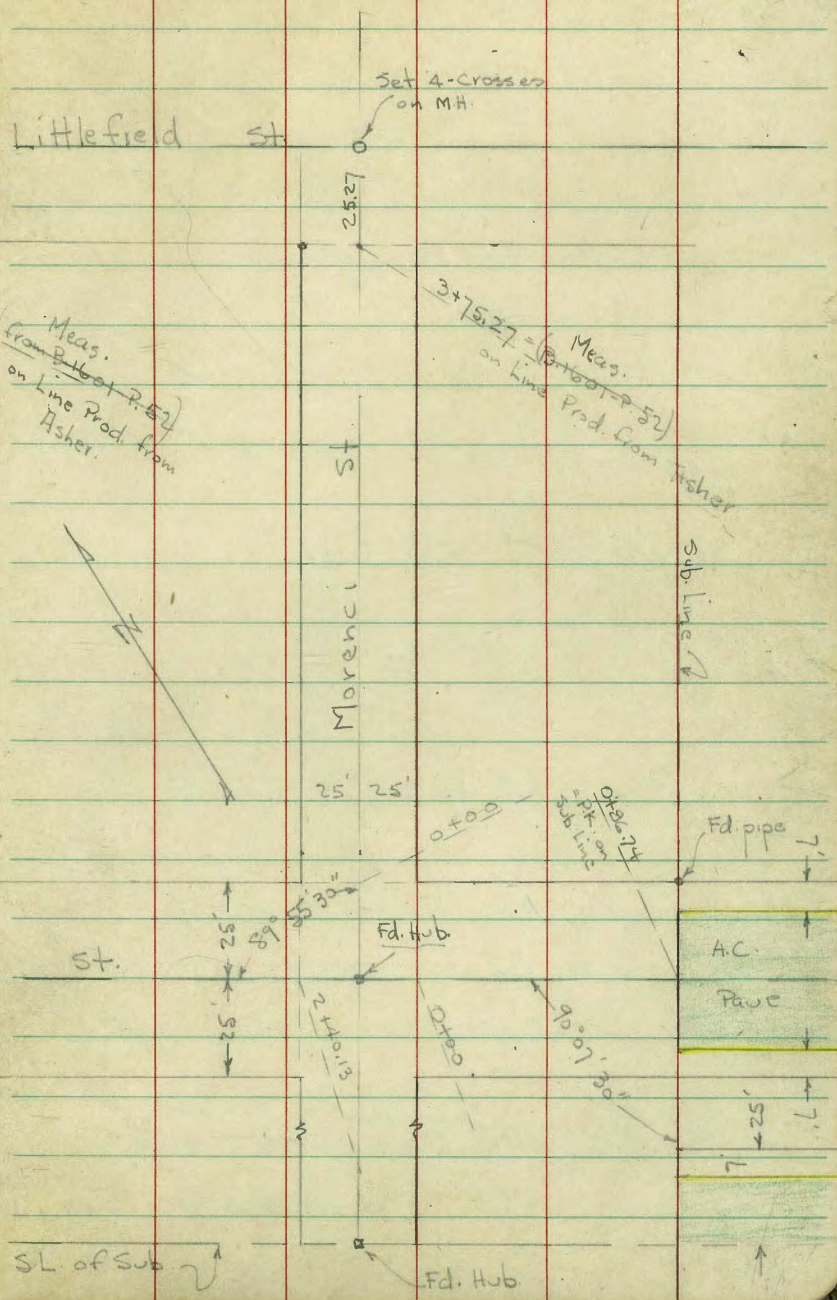 Set 4-Crosses
on M.H.
Littlefield St.
25.27
3+75.27 = Meas.
(B-1601-P.52)
on Line Prod. from Asher
Meas.
from B-1601-P.52)
on Line Prod. from
Asher.
St
Morenci
Sub. Line
25' 25'
0+00
0+86.74
= Pt. on
Sub Line
Fd. pipe
7'
25'
89° 55' 30"
Fd. Hub.
A.C.
Pave
St.
25'
2+40.13
0+00
90° 07' 30"
7'
25'
7'
S.L. of Sub
Fd. Hub